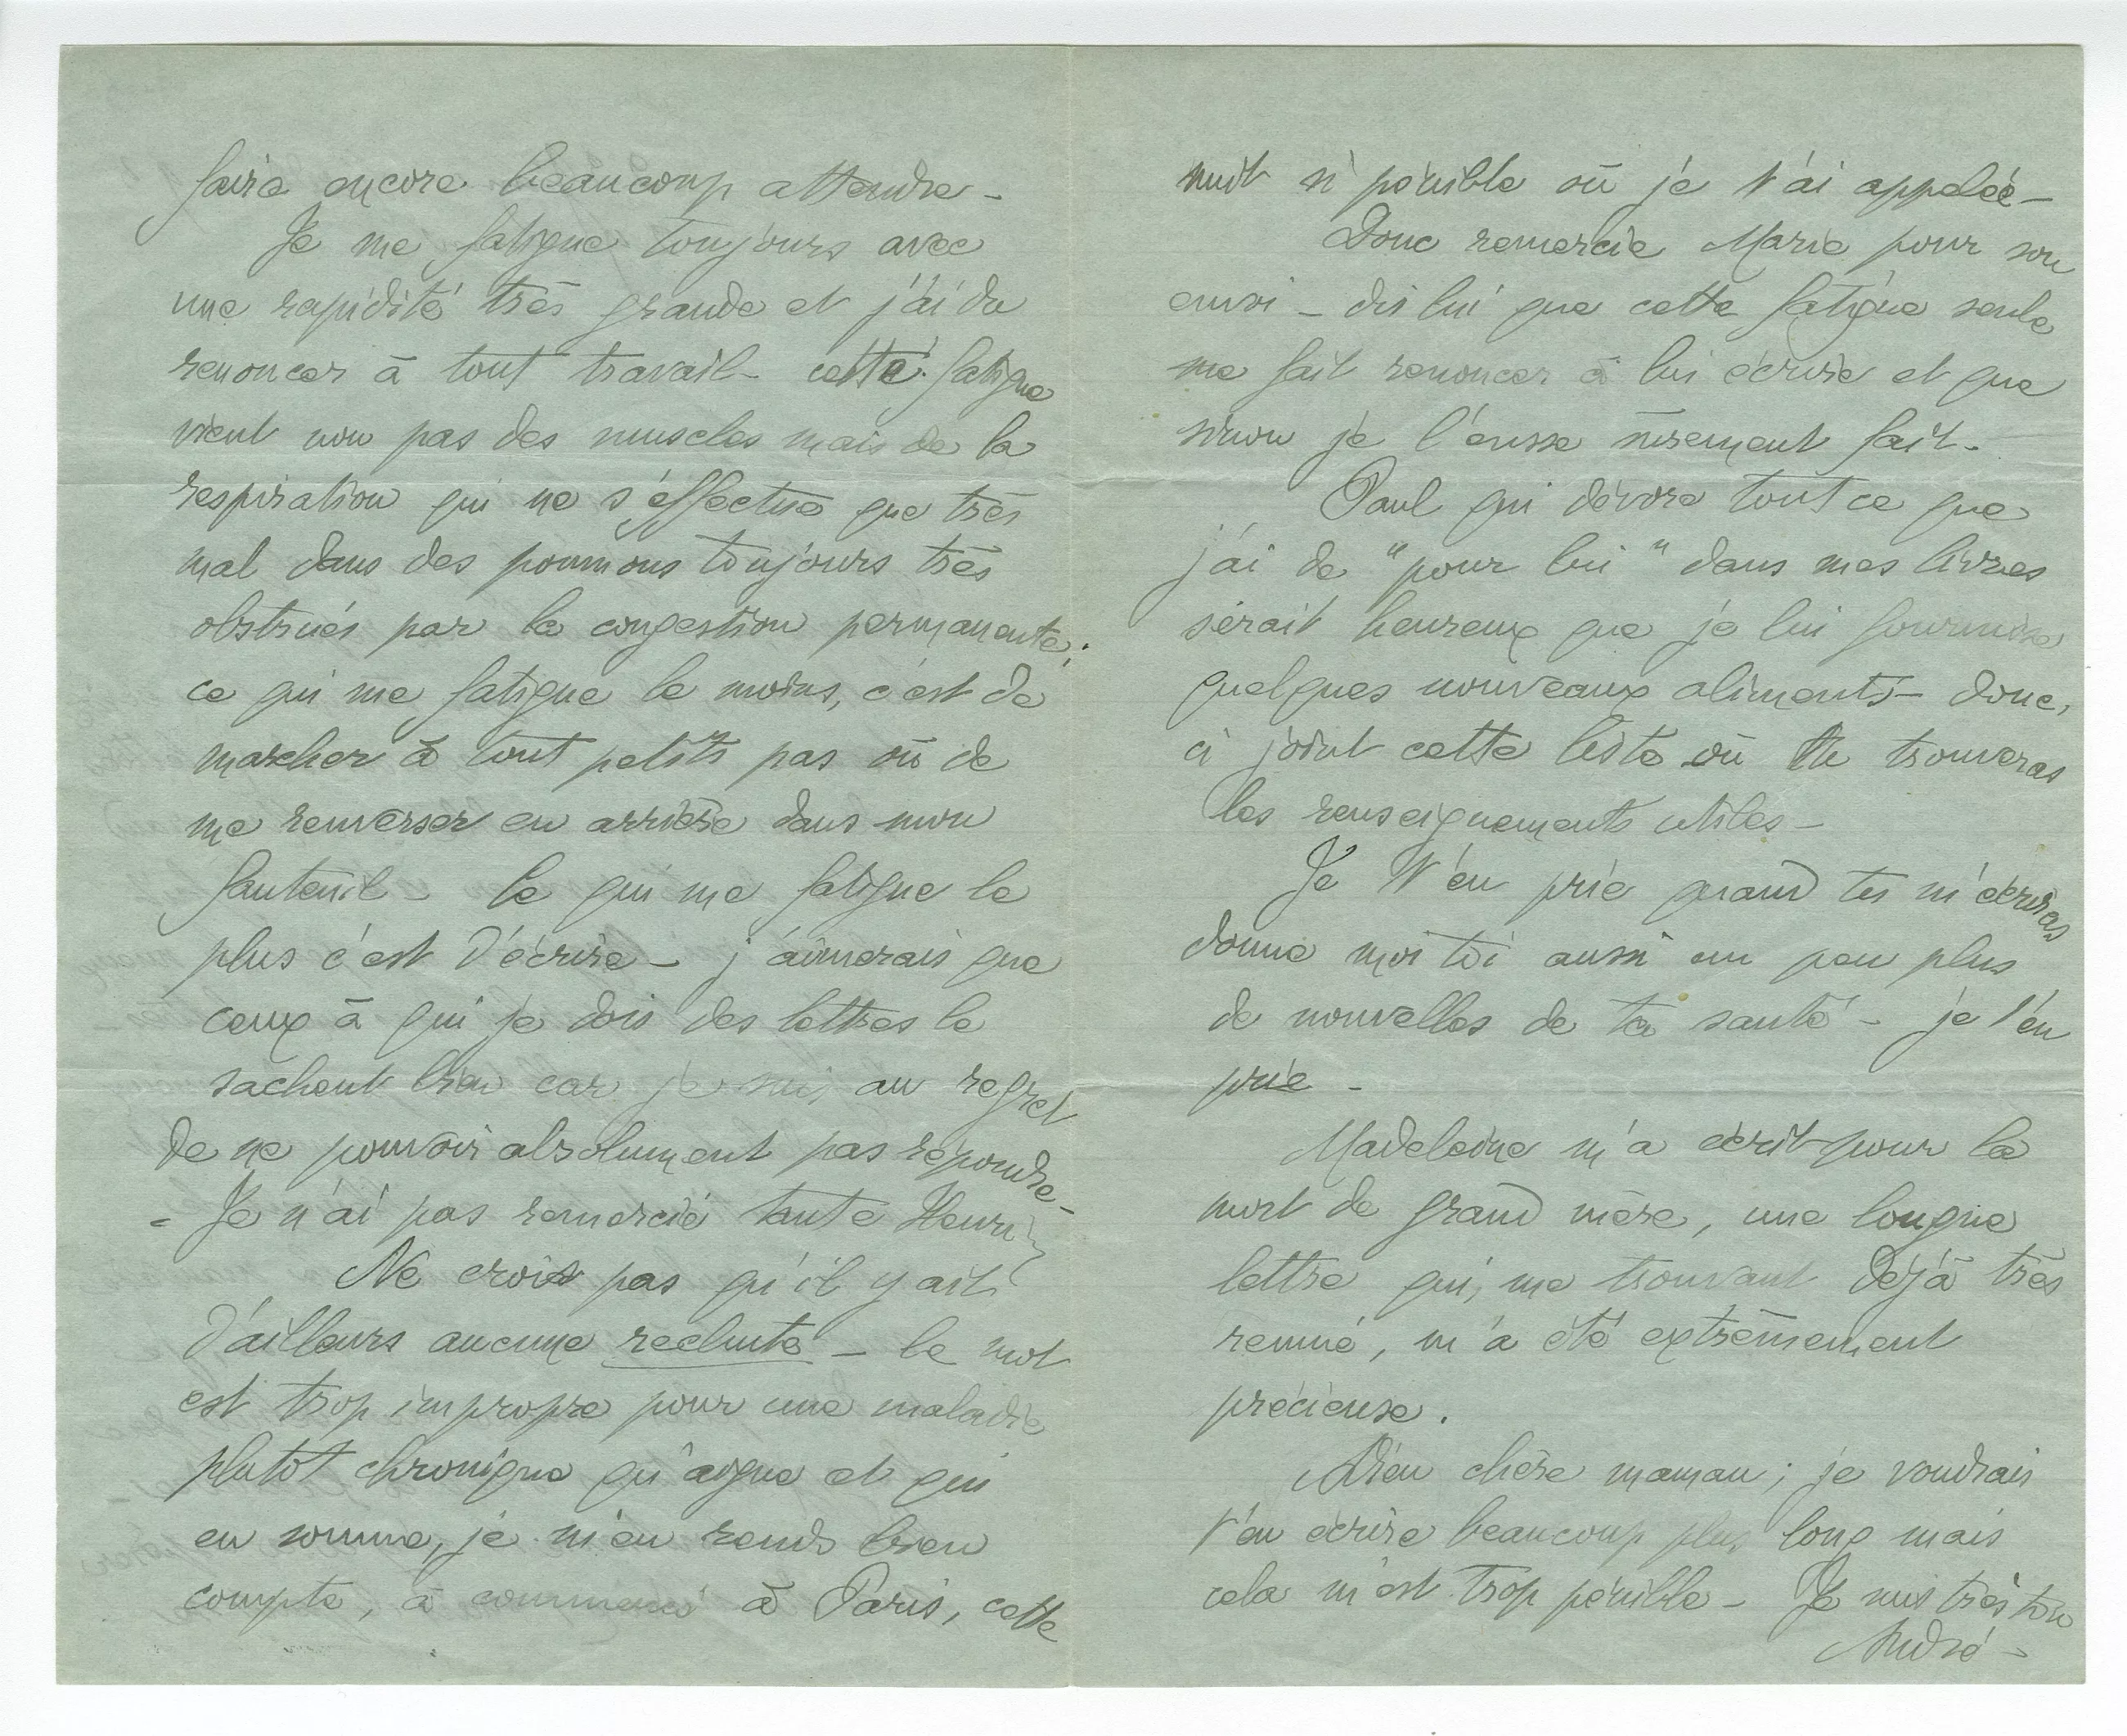 faire encore beaucoup attendre -
Je me fatigue toujours avec
une rapidité très grande et j'ai du
renoncer à tout travail - cette fatigue
vient non pas des muscles mais de la
respiration qui ne s'effectue que très
mal dans des poumons toujours très
obstrués par la congestion permanente ;
ce qui me fatigue le moins, c'est de
marcher à tout petits pas ou de
me renverser en arrière dans mon
fauteuil - Ce qui me fatigue le
plus c'est d'écrire - j'aimerais que
ceux à qui je dois des lettres le
sachent bien car je suis au regret
de ne pouvoir absolument pas répondre -
- Je n'ai pas remercié tante Henry
Ne crois pas qu'il y ait
d'ailleurs aucune rechute - le mot
est trop impropre pour une maladie
plutôt chronique qu'aigue et qui
en somme, je m'en rends bien
compte, a commencé à Paris, cette
nuit si pénible où je t'ai appelée -
Donc remercie Marie pour son
envoi - dis lui que cette fatigue seule
me fait renoncer à lui écrire et que
sinon je l'eusse surement fait -
Paul qui dévore tout ce que
j'ai de "pour lui" dans mes livres
serait heureux que je lui fournisse
quelques nouveaux aliments - donc,
ci joint cette liste où tu trouveras
les renseignements utiles -
Je t'en prie quand tu m'écriras
donne moi toi aussi un peu plus
de nouvelles de ta santé - je t'en
prie -
Madeleine m'a écrit pour la
mort de grand mère, une longue
lettre qui, me trouvant déjà très
remué, m'a été extrêmement
précieuse.
Adieu chère maman ; je voudrais
t'en écrire beaucoup plus long mais
cela m'est trop pénible - Je suis très ton
André -